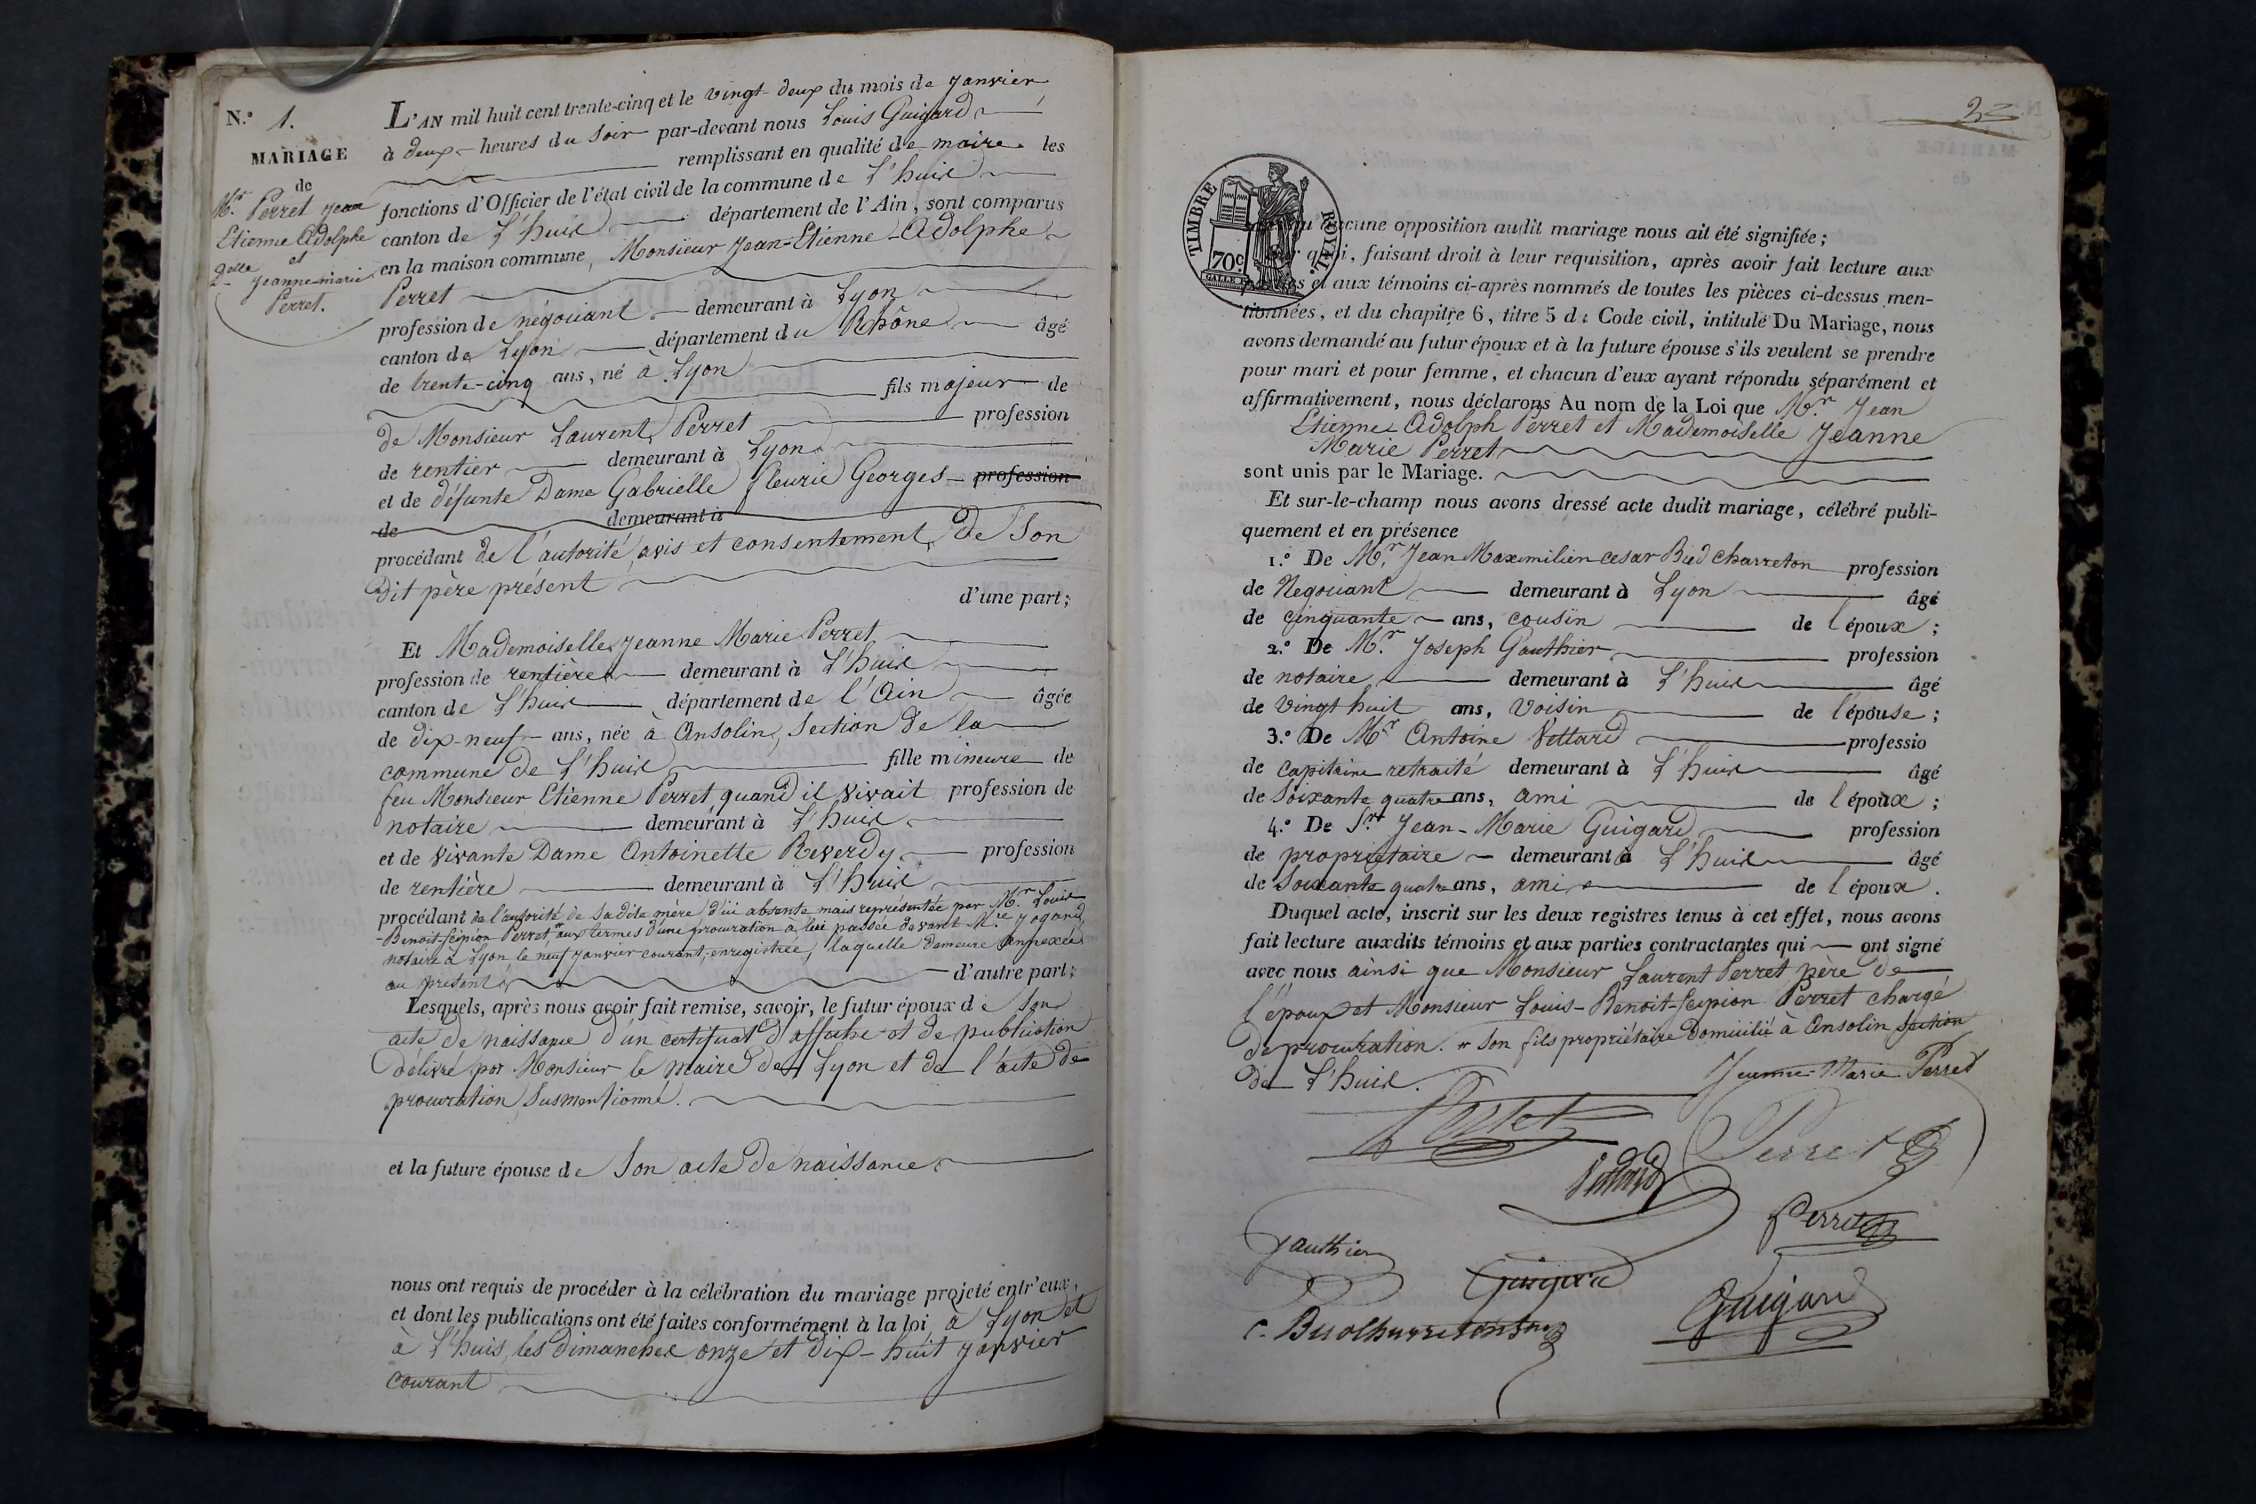 N.º 1.
MARIAGE
de
Mr. Perret Jean
Etienne Adolphe
et
Delle Jeanne-marie
Perret.
L'AN mil huit cent trente-cinq et le vingt-deux du mois de Janvier
à deux heures du Soir par-devant nous Louis Guigard
remplissant en qualité de maire les
fonctions d'Officier de l'état civil de la commune de L'huis
canton de L'huis département de l'Ain, sont comparus
en la maison commune, Monsieur Jean-Etienne-Adolphe
Perret
profession de négociant demeurant à Lyon
canton de Lyon département du Rhône âgé
de trente-cinq ans, né à Lyon
fils majeur de
de Monsieur Laurent Perret profession
de rentier demeurant à Lyon
et de défunte Dame Gabrielle fleurie Georges profession
de demeurant à
procédant de l'autorité, avis et consentement de Son
dit père présent
d'une part;
Et Mademoiselle Jeanne Marie Perret
profession de rentière demeurant à L'huis
canton de L'huis département de l'Ain âgée
de dix-neuf ans, née à Ansolin, Section de la
commune de L'huis fille mineure de
feu Monsieur Etienne Perret, quand il vivait profession de
notaire demeurant à L'huis
et de vivante Dame Antoinette Reverdy profession
de rentière demeurant à L'huis
procédant de l'autorité de sa dite mère d'ici absente mais représentée par Mr. Louis
-Benoit-Scipion Perret * aux termes d'une procuration à lui passée devant Me. Jogand
notaire à Lyon le neuf janvier courant, enregistrée, laquelle demeure annexée
au présent d'autre part;
Lesquels, après nous avoir fait remise, savoir, le futur époux de son
acte de naissance d'un certificat d'affiche et de publication
délivré par Monsieur le maire de Lyon et de l'acte de
procuration susmentionné.
et la future épouse de Son acte de naissance.
nous ont requis de procéder à la célébration du mariage projeté entr'eux,
et dont les publications ont été faites conformément à la loi à Lyon et
à L'huis, les Dimanches onze et dix-huit janvier
courant
2
TIMBRE ROYAL.
70c.
aucune opposition audit mariage nous ait été signifiée;
quoi, faisant droit à leur requisition, après avoir fait lecture aux
parties et aux témoins ci-après nommés de toutes les pièces ci-dessus men-
tionnées, et du chapitre 6, titre 5 du Code civil, intitulé Du Mariage, nous
avons demandé au futur époux et à la future épouse s'ils veulent se prendre
pour mari et pour femme, et chacun d'eux ayant répondu séparément et
affirmativement, nous déclarons Au nom de la Loi que Mr. Jean
Etienne Adolph Perret et Mademoiselle Jeanne
Marie Perret
sont unis par le Mariage.
Et sur-le-champ nous avons dressé acte dudit mariage, célébré publi-
quement et en présence
1.º De Mr. Jean Maximilien cesar Bied charreton profession
de Negociant demeurant à Lyon âgé
de cinquante ans, cousin de l'époux;
2.º De Mr. Joseph Gauthier profession
de notaire demeurant à L'huis âgé
de vingt huit ans, voisin de l'épouse;
3.º De Mr Antoine Vettard professio
de capitaine retraité demeurant à L'huis âgé
de Soixante quatre ans, ami de l'époux;
4.º De Sr. Jean-Marie Guigard profession
de propriétaire demeurant à L'huis âgé
de Soixante quatre ans, ami de l'époux.
Duquel acte, inscrit sur les deux registres tenus à cet effet, nous avons
fait lecture auxdits témoins et aux parties contractantes qui ont signé
avec nous ainsi que Monsieur Laurent Perret père de
l'époux et Monsieur Louis-Benoit-Scipion Perret chargé
de procuration. * Son fils propriétaire domicilié à Ansolin Section
de L'huis.
Jeanne Marie Perret
Perret
Perret
Vettard
Perret
Gauthier
Guigard
Guigard